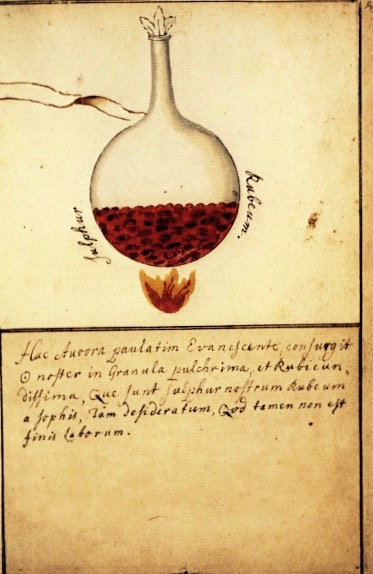 Sulphur
Rubeum.
Hac Aurora paulatim Evanescente, consurgit
☉ noster in Granula pulchrima, et Rubicun,
dissima, Que sunt sulphur nostrum Rubeum
a sophis, Tam desideratum, Qod tamen non est
finis laborum.